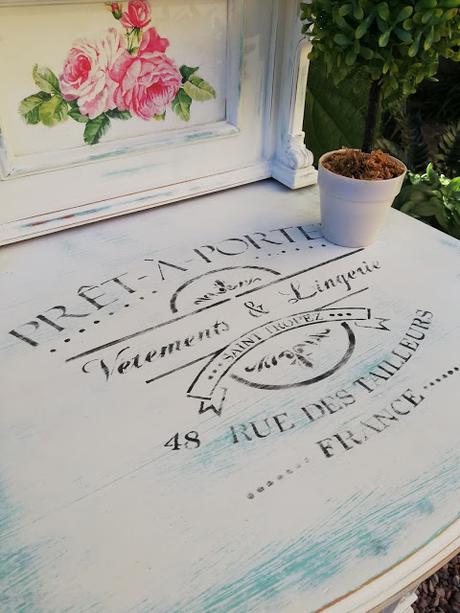 PRÊT-À-PORTE
Vetements & Lingerie
SAINT TROPEZ
48 RUE DES TAILLEURS
FRANCE